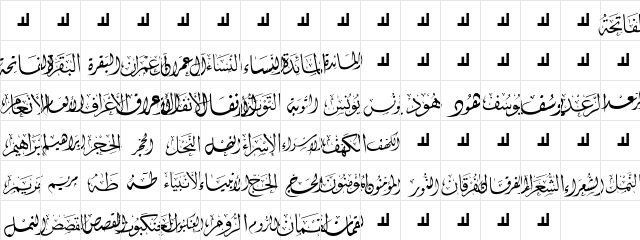 الفاتحة
المائدة المائدة النساء النساء آل عمران عمران البقرة البقرة الفاتحة
الرعد يوسف يوسف هود هود يونس يونس التوبة التوبة الأنفال الأنفال الأعراف الأعراف الأنعام الأنعام
الكهف الكهف الإسراء الإسراء النحل النحل الحجر الحجر إبراهيم إبراهيم
النمل الشعراء الشعراء الفرقان الفرقان النور المؤمنون المؤمنون الحج الحج الأنبياء الأنبياء طه طه مريم مريم
لقمان لقمان الروم الروم العنكبوت العنكبوت القصص القصص النمل